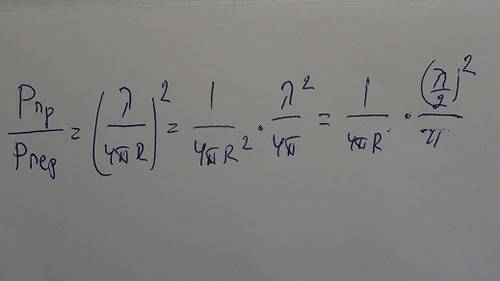 Pпр/Pпер = (λ/4πR)² = 1/4πR² · λ²/4π = 1/4πR · (λ/2)²/π